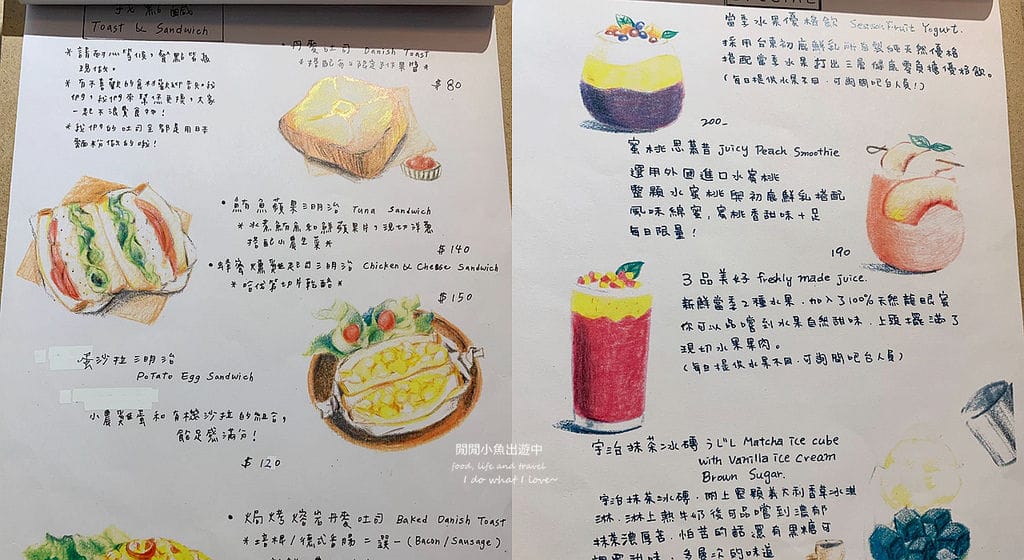 Toast & Sandwich
現做。
一起不浪費食物!
*我們的吐司全都是用日本
麵粉做的哦!
• 丹麥吐司 Danish Toast
$80
• 鮪魚蘋果三明治 Tuna Sandwich
*水煮鮪魚和鮮蘋果片,現切洋蔥
搭配小農生菜*
$140
• 蜂蜜燻雞起司三明治 Chicken & Cheese Sandwich
$150
蛋沙拉三明治
Potato Egg Sandwich
小農雞蛋和有機沙拉的組合,
飽足感滿分!
$120
• 焗烤熔岩丹麥吐司 Baked Danish Toast
二選一(Bacon/Sausage).
閒閒小魚出遊中
food, life and travel
I do what I love~
當季水果優格飲 Season Fruit Yogurt.
採用台東初鹿鮮乳所自製純天然優格
搭配當季水果打出三層健康零負擔優格飲。
(每日提供水果不同,可詢問吧台人員!)
200_
蜜桃思慕昔 Juicy Peach Smoothie
選用外國進口水蜜桃
整顆水蜜桃與初鹿鮮乳搭配
風味綿蜜,蜜桃香甜味十足
每日限量!
190
3品美好 freshly made juice.
新鮮當季2種水果,加入了100%天然龍眼蜜
你可以品嘗到水果自然甜味,上頭擺滿了
現切水果果肉。
(每日提供水果不同,可詢問吧台人員)
宇治抹茶冰磚 うじし Matcha ice cube
with Vanilla ice Cream
Brown Sugar.
宇治抹茶冰磚,附上整顆義大利香草冰淇
淋,淋上熱牛奶後可品嚐到濃郁
抹茶濃厚苦,怕苦的話還有黑糖可
調配甜味,多層次的味道